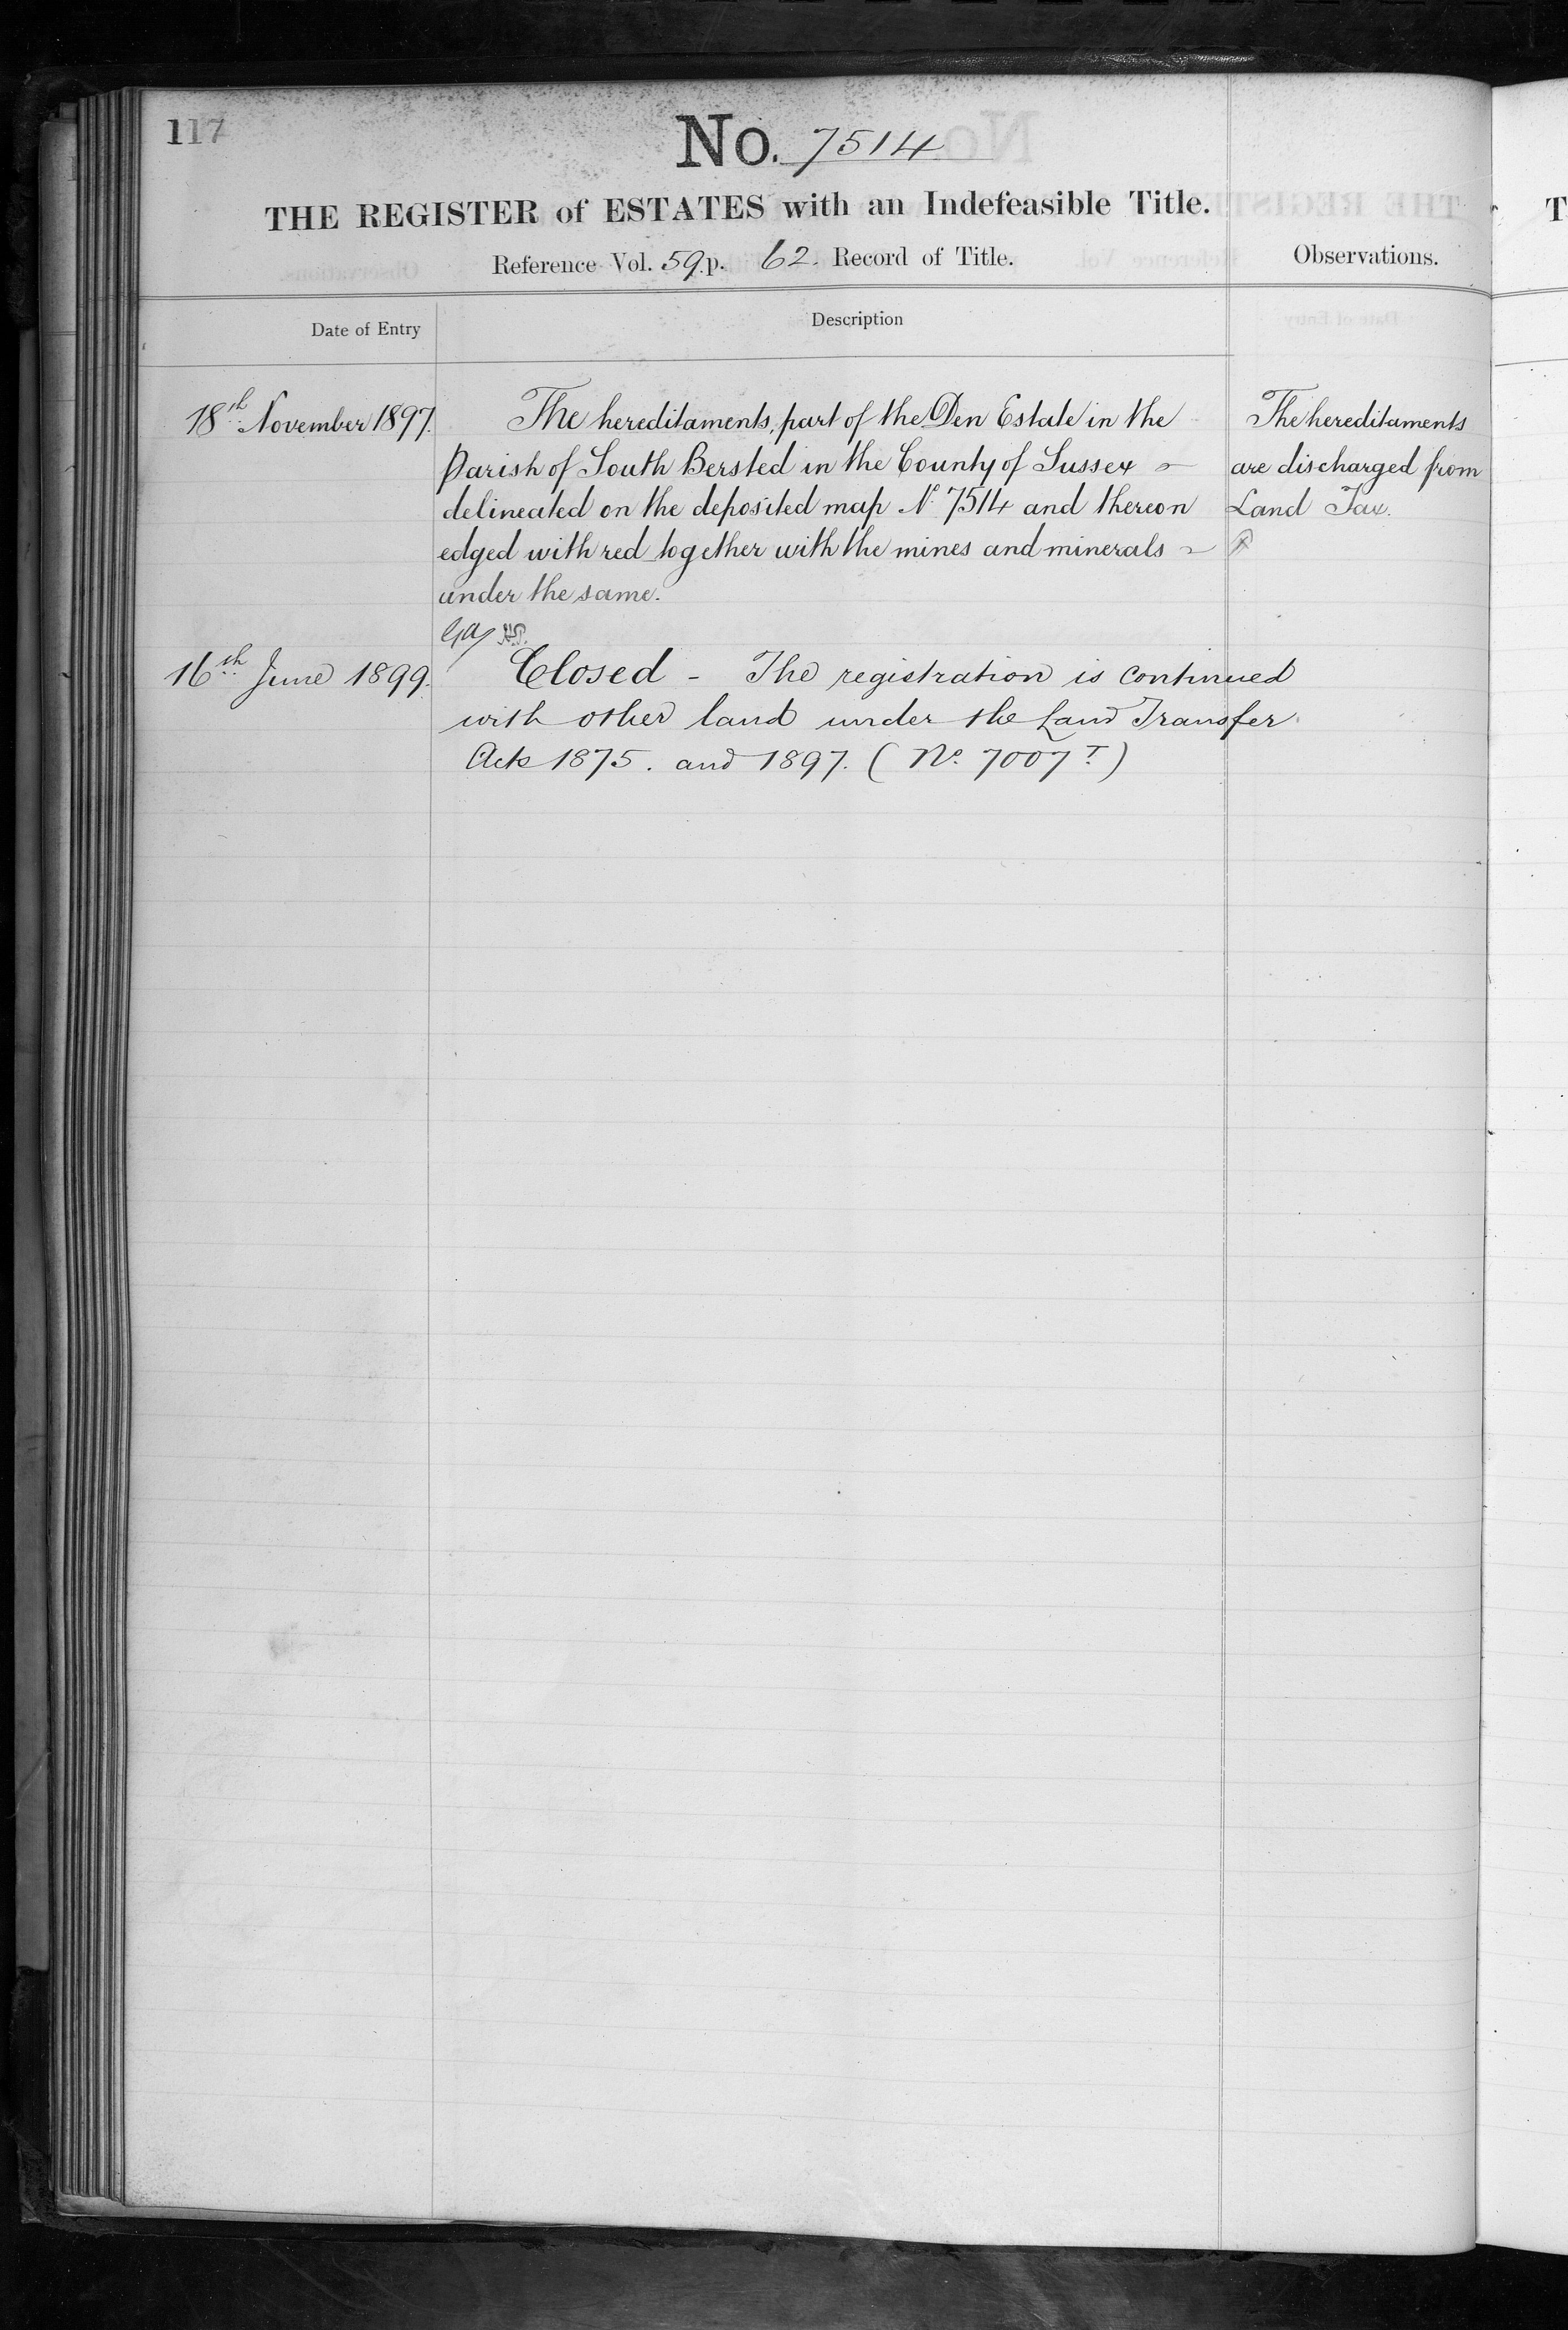 117
No. 7514
THE REGISTER of ESTATES with an Indefeasible Title.
Reference Vol. 59 p. 62. Record of Title.
Observations.
Date of Entry
Description
18th November 1897.
The hereditaments, part of the Den Estate in the
Parish of South Bersted in the County of Sussex
delineated on the deposited map No. 7514 and thereon
edged with red together with the mines and minerals
under the same.
The hereditaments
are discharged from
Land Tax.
16th June 1899.
Closed - The registration is continued
with other land under the Land Transfer
Acts 1875. and 1897. (No. 7007 T)
T